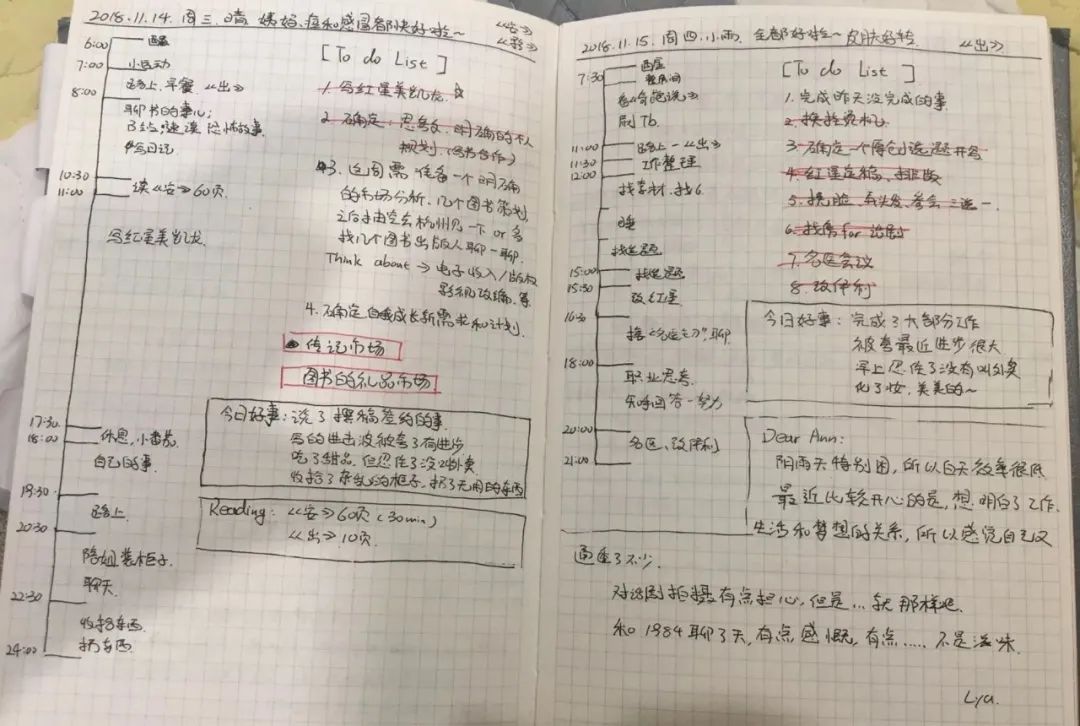 2018.11.14. 周三.晴. 姨妈、痘和感冒都快好啦~
《安》
6:00
7:00 小运动
路上、早餐 《出》
8:00
聊书的事儿；
写日记
10:30
11:00 读《安》60页
写红星美凯龙
17:30
18:00 休息、小番茄
自己的事
19:30
路上
20:30
陪姐装柜子.
聊天
22:30
收拾东西
扔东西
24:00
[To do List]
1. 写红星美凯龙.
2. 确定、思考文、明确的个人
规划.(图书合作)
3. 这周需准备一个明确
的市场分析、几个图书策划
之后抽空去杭州见一下 or 多
找几个图书出版人聊一聊.
Think about → 电子收入/版权
影视改编.等
4. 确定自我成长新需求和计划.
传记市场
图书的礼品市场
今日好事：说了撰稿签约的事
写的进击波被夸了有进步
吃了甜品、但忍住了没叫外卖
收拾了杂乱的柜子、扔了无用的东西
Reading：《安》60页 (30min)
《出》10页.
2018.11.15. 周四.小雨. 全都好啦~ 皮肤好转. 《出》
7:30
刷Tb.
11:00 路上-《出》
11:30 工作整理
12:00
找素材、找G.
睡
找选题
15:00 找选题
15:30
改红星
16:30
18:00
职业思考
知乎回答-努力
20:00
名医、改伊利
21:00
[To do List]
1. 完成昨天没完成的事
2. 换登机.
3. 确定一个原创选题开写
4. 红星定稿、排版
5. 洗脸、弄头发、参会三选一.
6. 找房 for 治愈
7. 名医会议
8. 改伊利
今日好事：完成了大部分工作
被夸最近进步很大
早上忍住了没有叫外卖
化了妆、美美的~
Dear Ann：
阴雨天特别困，所以白天效率很低
最近比较开心的是，想明白了工作.
生活和梦想的关系，所以感觉自己又
通透了不少.
对话剧拍摄有点担心，但是…就那样吧.
和1984聊了天，有点感慨，有点……不是滋味.
Lya.